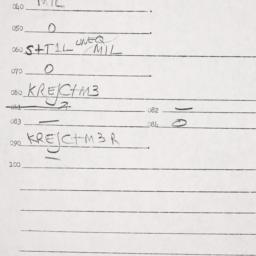 040 MIL
050 O
060 S+T1L UNEQ MIL
070 O
080 KREJC+M3
081 — 082 —
083 — 084 O
090 KREJC+M3R
100